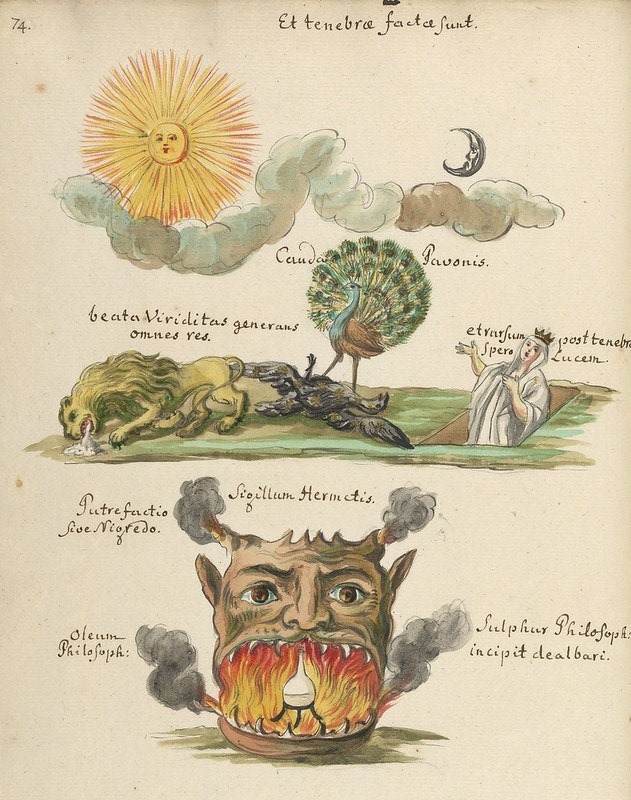 74.
Et tenebræ factæ sunt.
Cauda Pavonis.
beata Viriditas generans
omnes res.
et rursum post tenebra
spero Lucem.
Sigillum Hermetis.
Putrefactio
sive Nigredo.
Oleum
Philosoph:
Sulphur Philosoph:
incipit dealbari.